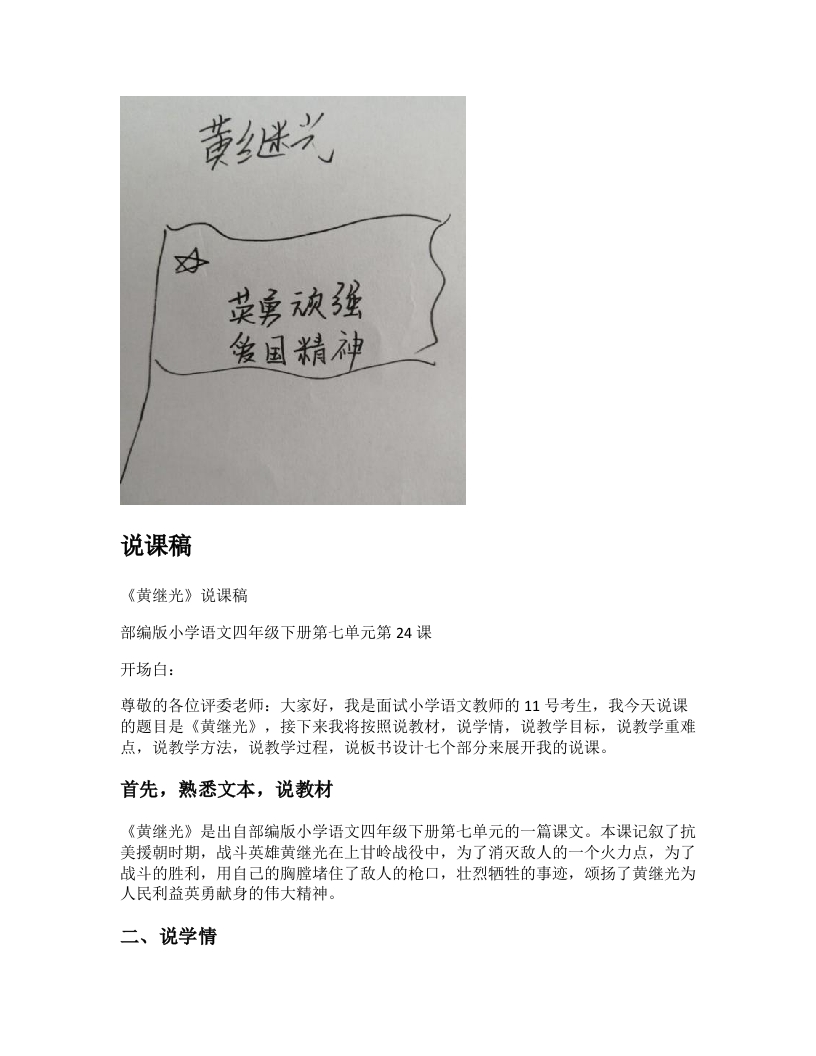 黄继光
英勇顽强
爱国精神
说课稿
《黄继光》说课稿
部编版小学语文四年级下册第七单元第 24 课
开场白：
尊敬的各位评委老师：大家好，我是面试小学语文教师的 11 号考生，我今天说课
的题目是《黄继光》，接下来我将按照说教材，说学情，说教学目标，说教学重难
点，说教学方法，说教学过程，说板书设计七个部分来展开我的说课。
首先，熟悉文本，说教材
《黄继光》是出自部编版小学语文四年级下册第七单元的一篇课文。本课记叙了抗
美援朝时期，战斗英雄黄继光在上甘岭战役中，为了消灭敌人的一个火力点，为了
战斗的胜利，用自己的胸膛堵住了敌人的枪口，壮烈牺牲的事迹，颂扬了黄继光为
人民利益英勇献身的伟大精神。
二、说学情